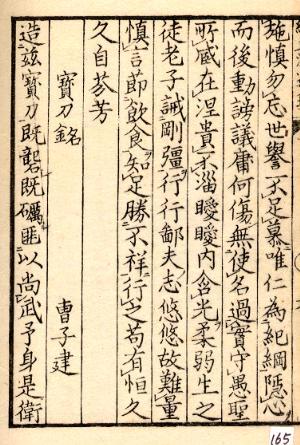 施慎勿忘世譽不足慕唯仁為紀綱隱心
而後動謗議庸何傷無使名過實守愚聖
所臧在涅貴不淄曖曖內含光柔弱生之
徒老子誡剛彊行行鄙夫志悠悠故難量
慎言節飲食知足勝不祥行之苟有恒久
久自芬芳
寶刀銘
曹子建
造茲寶刀既礱既礪匪以尚武予身是衛
165